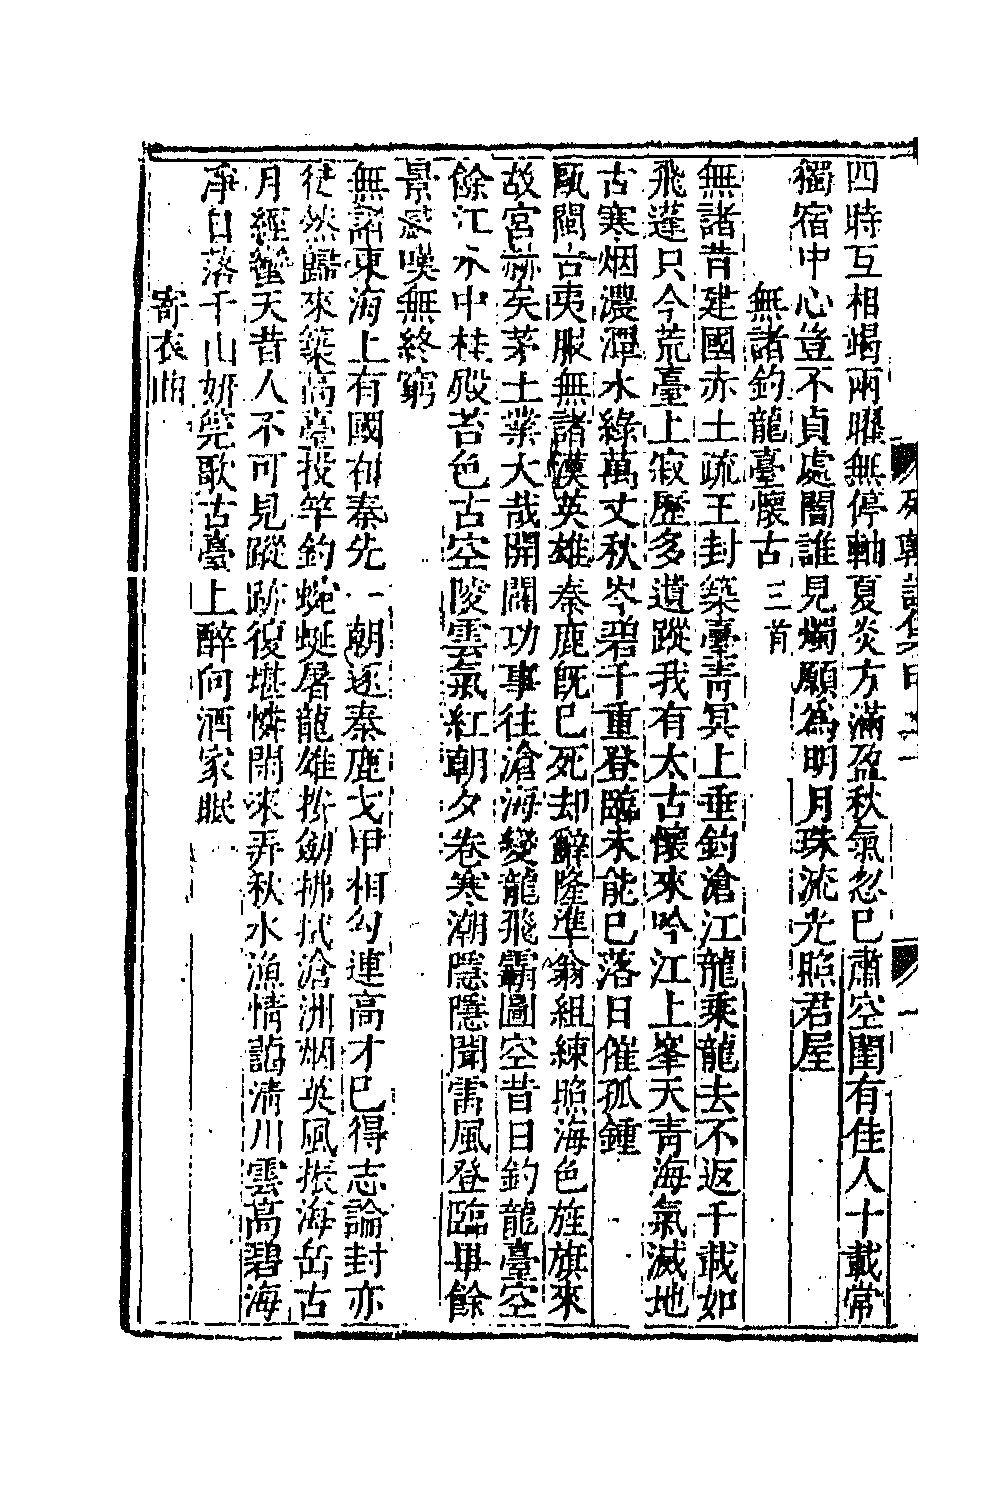 四時互相竭兩曜無停軸夏炎方滿盈秋氣忽已肅空閨有佳人十載常
獨宿中心豈不貞處闇誰見燭願為明月珠流光照君屋
無諸釣龍臺懷古三首
無諸昔建國赤土疏王封築臺青冥上垂釣滄江龍乘龍去不返千載如
飛蓬只今荒臺上寂歷多遺蹤我有太古懷來吟江上峯天青海氣滅地
古寒烟濃潭水綠萬丈秋岑碧千重登臨未能已落日催孤鍾
甌閩古夷服無諸漢英雄秦鹿既已死却辭隆準翁組練照海色旌旗來
故宮赫矣茅土業大哉開闢功事往滄海變龍飛霸圖空昔日釣龍臺空
餘江水中桂殿苔色古空陵雲氣紅朝夕卷寒潮隱隱聞雷風登臨畢餘
景感嘆無終窮
無諸東海上有國自秦先一朝逐秦鹿戈甲相勾連高才已得志論封亦
徒然歸來築高臺投竿釣蜿蜒屠龍雄掛劒拂拭滄洲烟英風振海岳古
月經蠻天昔人不可見蹤跡復堪憐閒來弄秋水漁情諂清川雲高碧海
淨日落千山妍筦歌古臺上醉向酒家眠
寄衣曲
列朝詩集甲
一